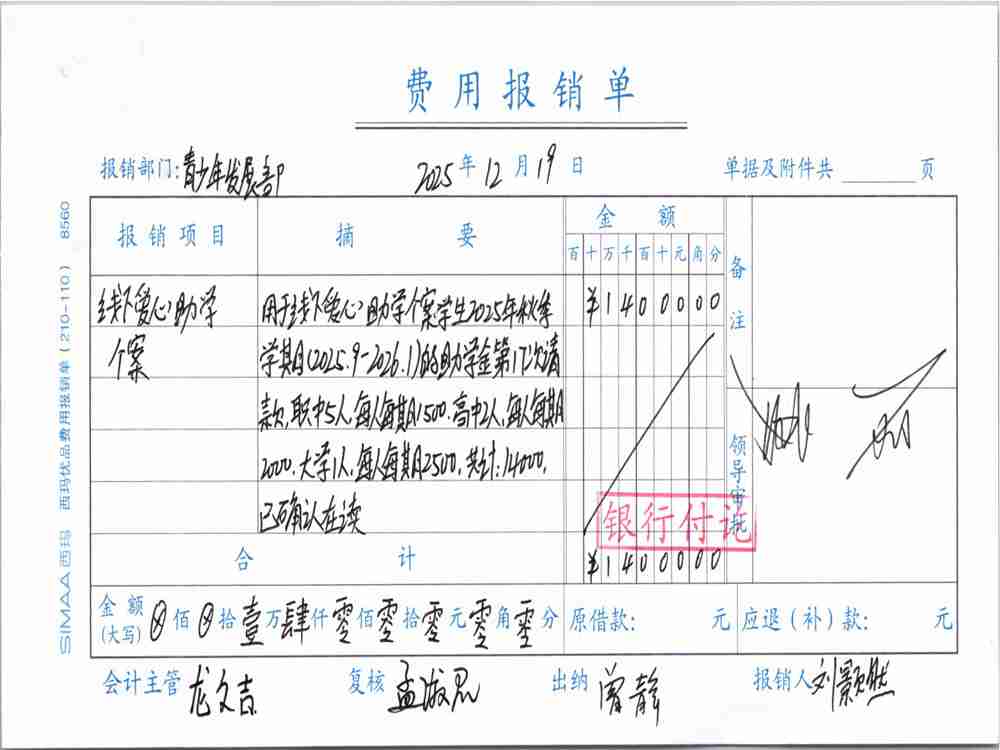 费用报销单
报销部门:青少年发展部 2025年12月19日 单据及附件共 页
报销项目 摘要 金额 备注
百十万千百十元角分
线下爱心助学 用于线下爱心助学个案学生2025年秋季 ¥1400000
个案 学期(2025.9-2026.1)的助学金第1次请
款,职中5人,每人每期1500.高中2人,每人每期
2000.大学1人,每人每期2500,共计:14000,
已确认在读
领导审批
银行付讫
合计 ¥1400000
金额(大写) 佰 拾壹万肆仟零佰零拾零元零角零分 原借款: 元 应退(补)款: 元
会计主管 龙文吉 复核 孟淑思 出纳 曾静 报销人 刘颢然
SIMAA西玛 西玛优品费用报销单(210-110) 8560